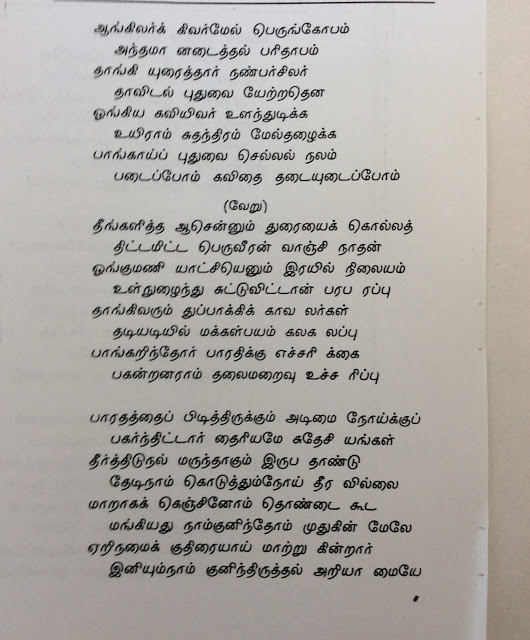 ஆங்கிலர்க் கிவர்மேல் பெருங்கோபம்
அந்தமா னடைத்தல் பரிதாபம்
தாங்கி யுரைத்தார் நண்பர்சிலர்
தாவிடல் புதுவை யேற்றதென
ஓங்கிய கவியிவர் உளந்துடிக்க
உயிராம் சுதந்திரம் மேல்தழைக்க
பாங்காய்ப் புதுவை செல்லல் நலம்
படைப்போம் கவிதை தடையுடைப்போம்
(வேறு)
தீங்களித்த ஆசென்னும் துரையைக் கொல்லத்
திட்டமிட்ட பெருவீரன் வாஞ்சி நாதன்
ஓங்குமணி யாட்சியெனும் இரயில் நிலையம்
உள்நுழைந்து சுட்டுவிட்டான் பரப ரப்பு
தாங்கிவரும் துப்பாக்கிக் காவ லர்கள்
தடியடியில் மக்கள்பயம் கலக லப்பு
பாங்கறிந்தோர் பாரதிக்கு எச்சரி க்கை
பகன்றனராம் தலைமறைவு உச்ச ரிப்பு
பாரதத்தைப் பிடித்திருக்கும் அடிமை நோய்க்குப்
பகர்ந்திட்டார் தைரியமே சுதேசி யங்கள்
தீர்த்திடுநல் மருந்தாகும் இருப தாண்டு
தேடிநாம் கொடுத்தும்நோய் தீர வில்லை
மாறாகக் கெஞ்சினோம் தொண்டை கூட
மங்கியது நாம்குனிந்தோம் முதுகின் மேலே
ஏறிநமைக் குதிரையாய் மாற்று கின்றார்
இனியும்நாம் குனிந்திருத்தல் அறியா மையே